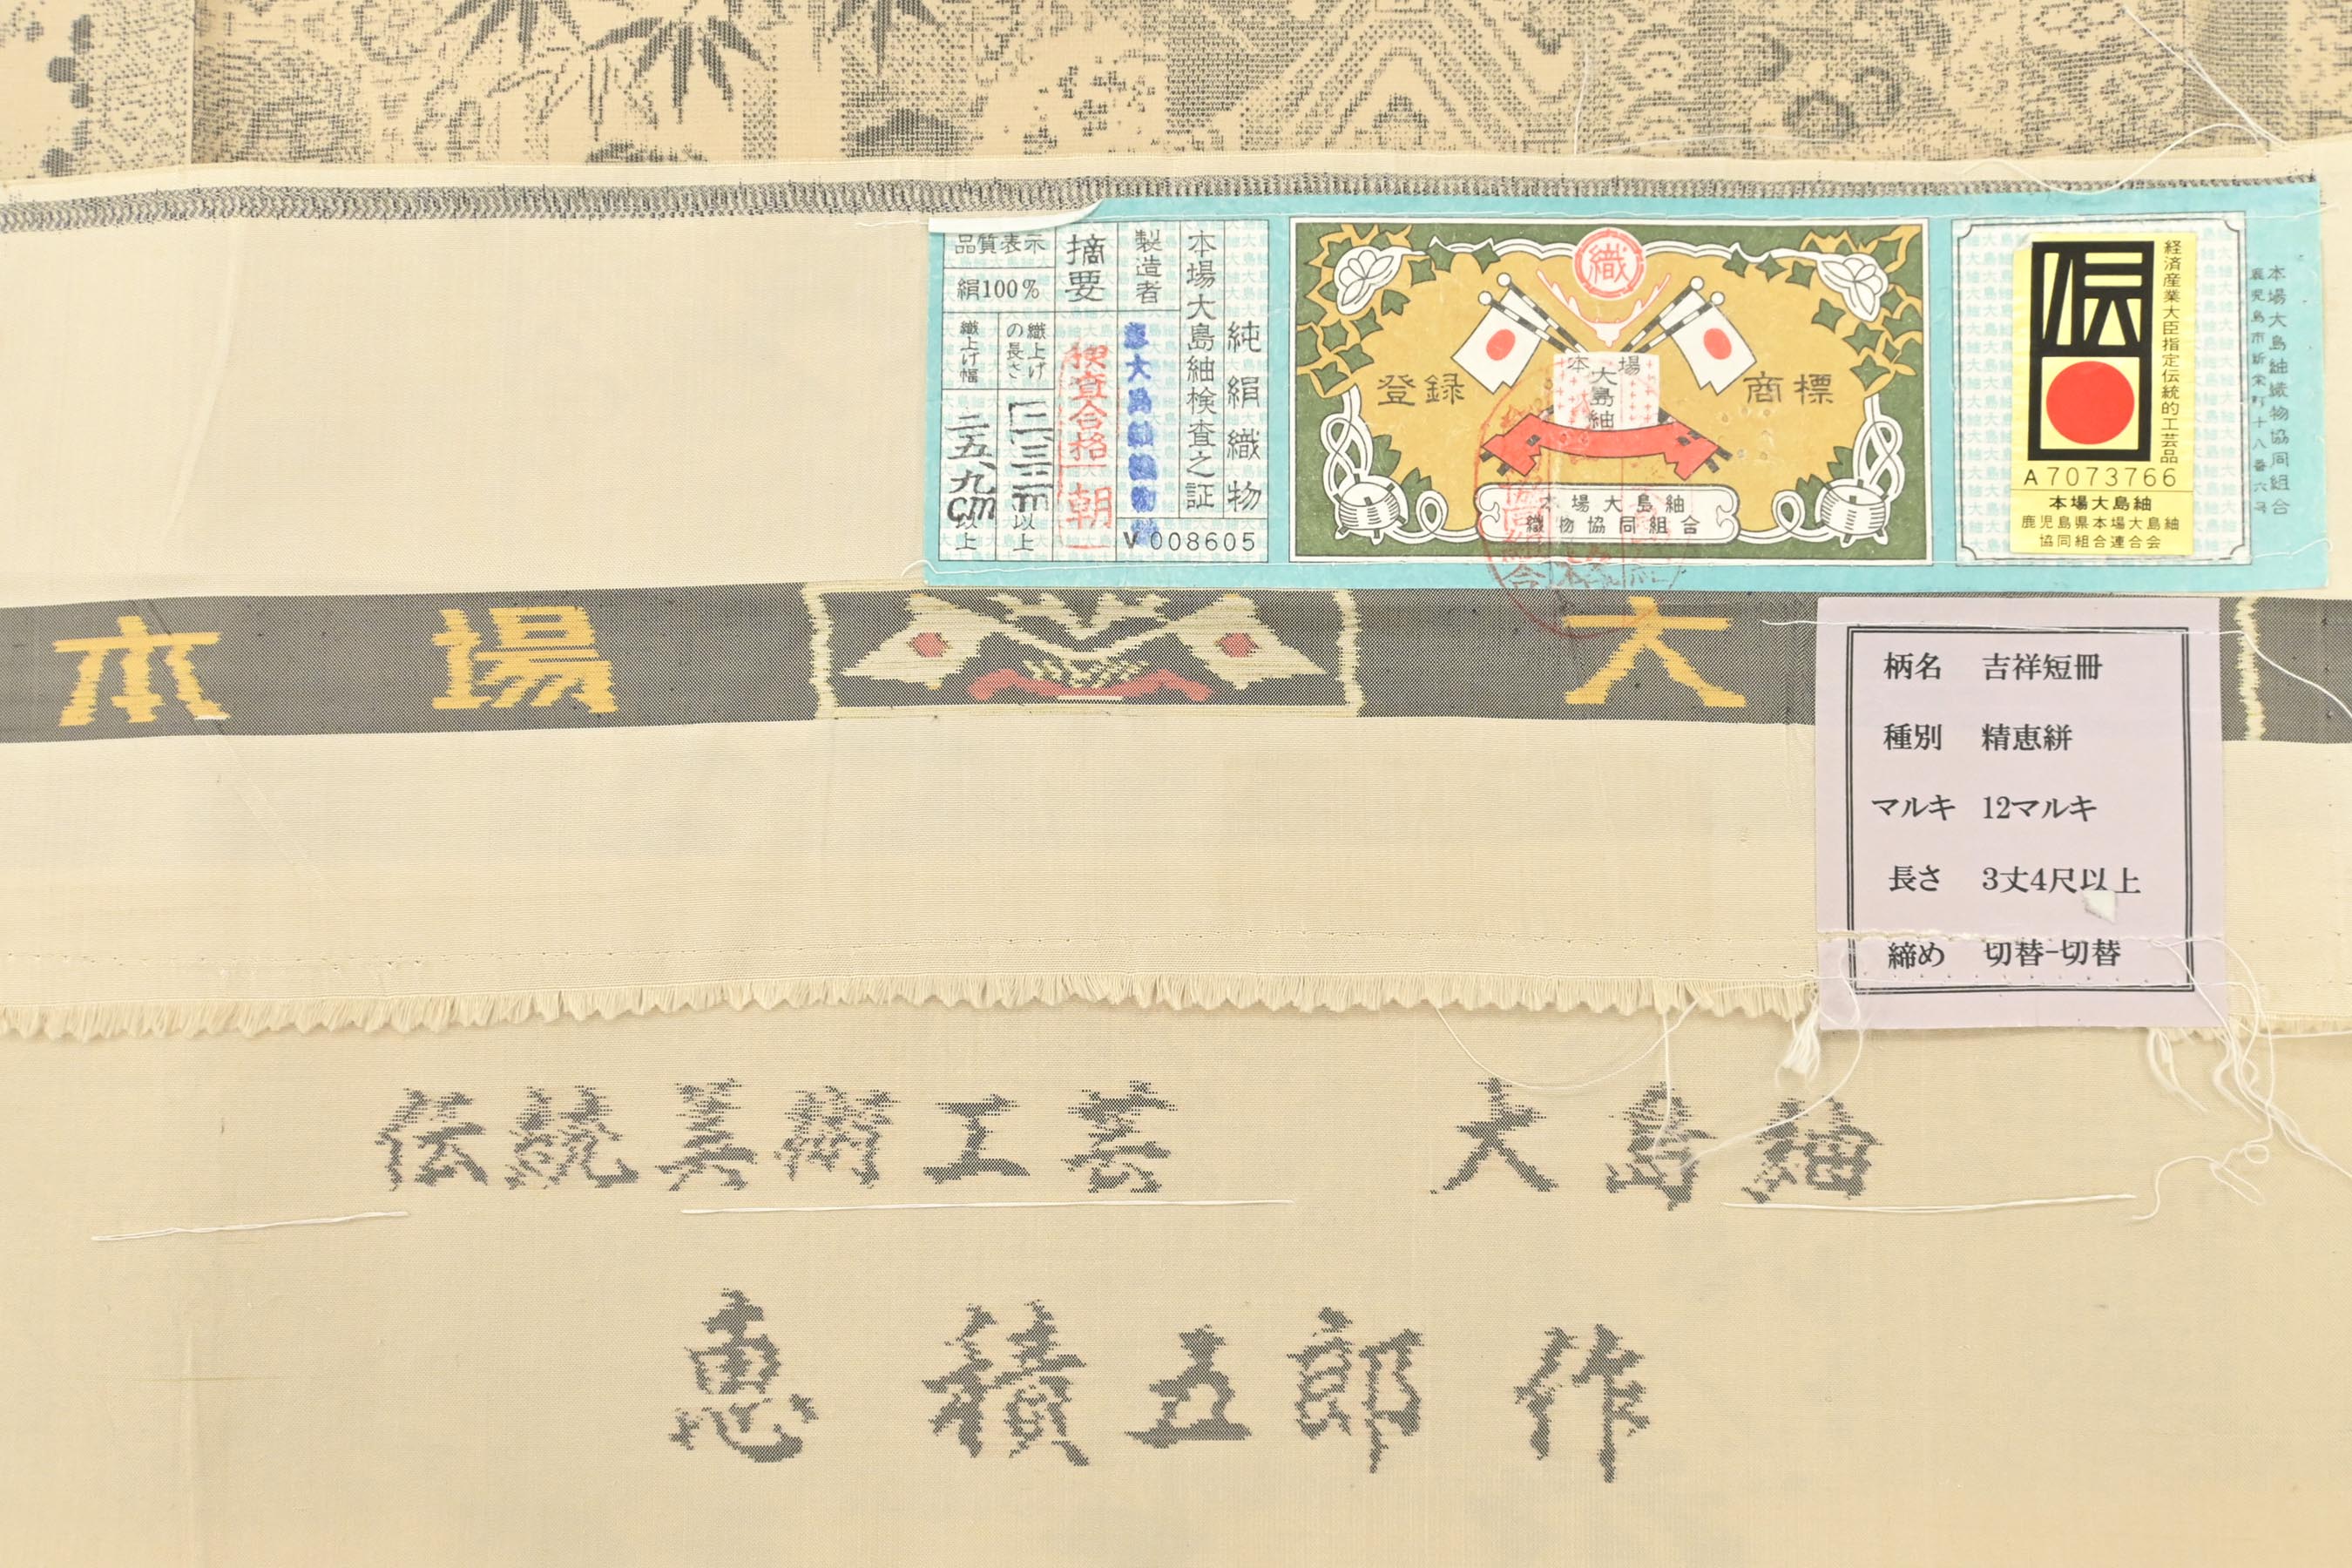 純絹織物
本場大島紬検査之証
製造者
V008605
摘要
検査合格
朝
品質表示
絹100%
織上げの長さ
一二、三m以上
織上げ幅
三五、九cm以上
織
登録 商標
本場
大島紬
本場大島紬
織物協同組合
伝
経済産業大臣指定伝統的工芸品
A7073766
本場大島紬
鹿児島県本場大島紬
協同組合連合会
本場大島紬織物協同組合
鹿児島市新栄町十八番六号
本場 大
柄名 吉祥短冊
種別 精恵絣
マルキ 12マルキ
長さ 3丈4尺以上
締め 切替-切替
伝統美術工芸 大島紬
恵 積五郎 作